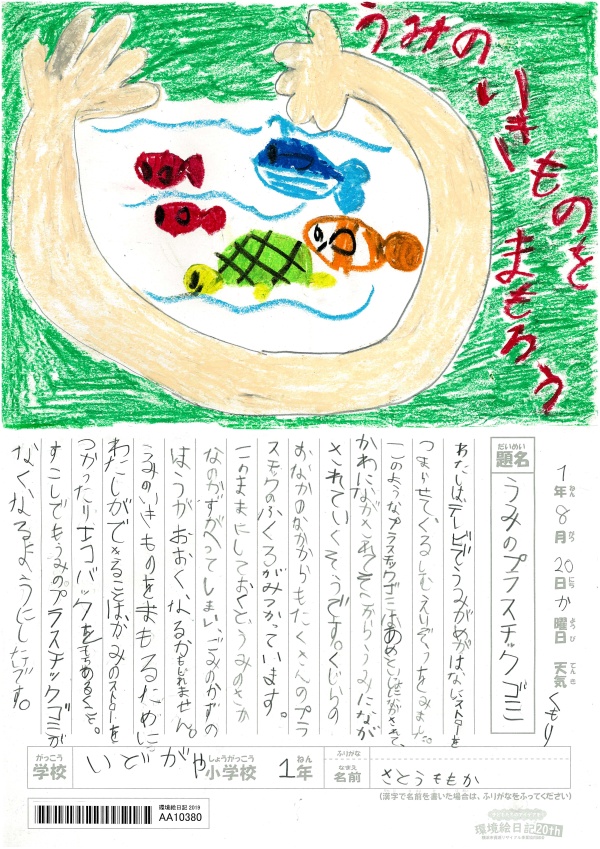 うみの
いきものを
まもろう
1年 8月 20日 か曜日 天気 くもり
ねん がつ にち ようび てんき
だいめい
題名 うみのプラスチックゴミ
わたしはテレビでうみがめがはなにストローを
つまらせてくるしむえいぞうをみました。
このようなプラスチックゴミはあめといっしょにながされて、
かわにながされてそこからうみになが
されていくそうです。くじらの
おなかのなかからもたくさんのプラ
スチックのふくろがみつかっています。
このままにしておくと、うみのさか
なのかずがへってしまい、ごみのかずの
ほうがおおくなるかもしれません。
うみのいきものをまもるために
わたしができることはかみのストローを
つかったりエコバックをもちあるくこと。
すこしでもうみのプラスチックゴミが
なくなるようにしたいです。
がっこう しょうがっこう ねん ふりがな
学校 いどがや小学校 1年 なまえ 名前 さとうももか
(漢字で名前を書いた場合は、ふりがなをふってください)
環境絵日記 2019
AA10380
環境絵日記20th